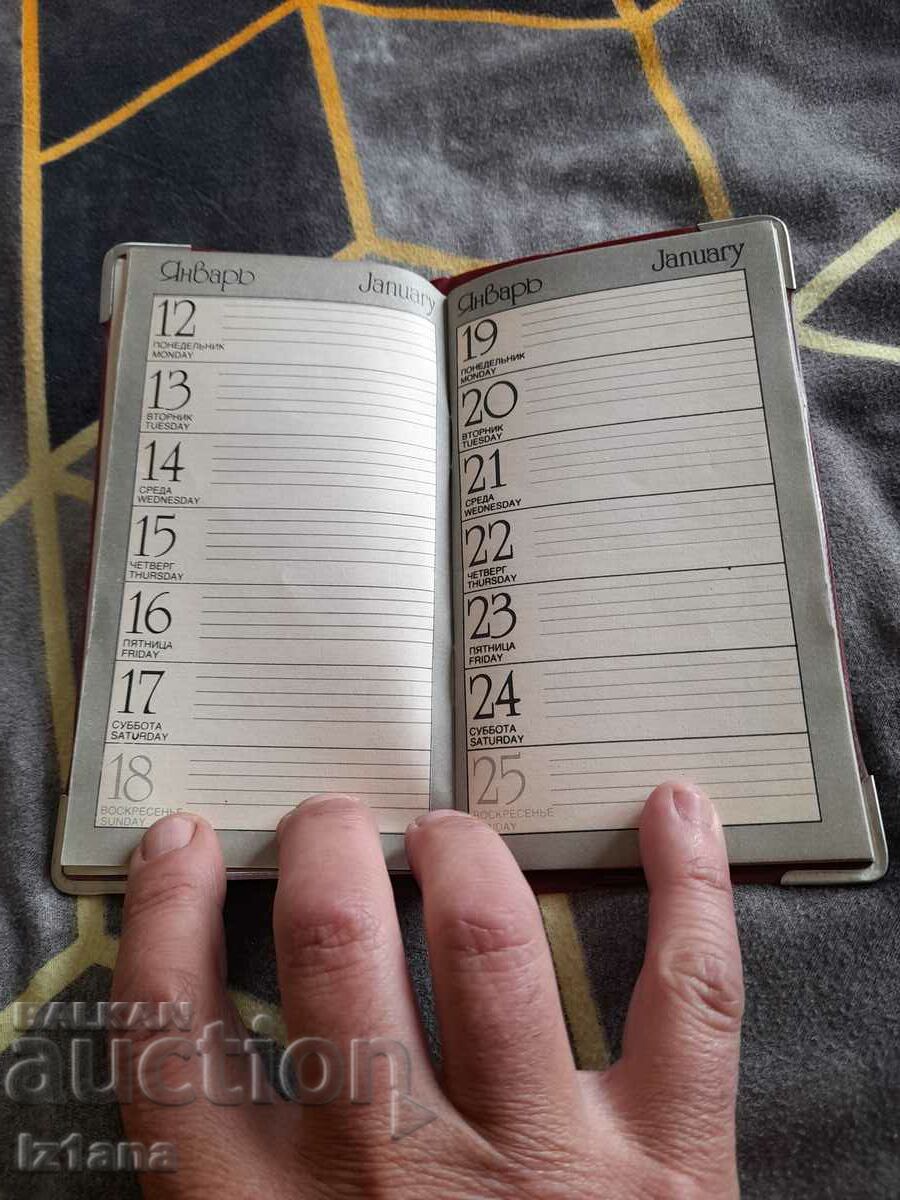 Январь January
12
ПОНЕДЕЛЬНИК
MONDAY
13
ВТОРНИК
TUESDAY
14
СРЕДА
WEDNESDAY
15
ЧЕТВЕРГ
THURSDAY
16
ПЯТНИЦА
FRIDAY
17
СУББОТА
SATURDAY
18
ВОСКРЕСЕНЬЕ
SUNDAY
Январь January
19
ПОНЕДЕЛЬНИК
MONDAY
20
ВТОРНИК
TUESDAY
21
СРЕДА
WEDNESDAY
22
ЧЕТВЕРГ
THURSDAY
23
ПЯТНИЦА
FRIDAY
24
СУББОТА
SATURDAY
25
ВОСКРЕСЕНЬЕ
BALKAN
auction
Iz1ana